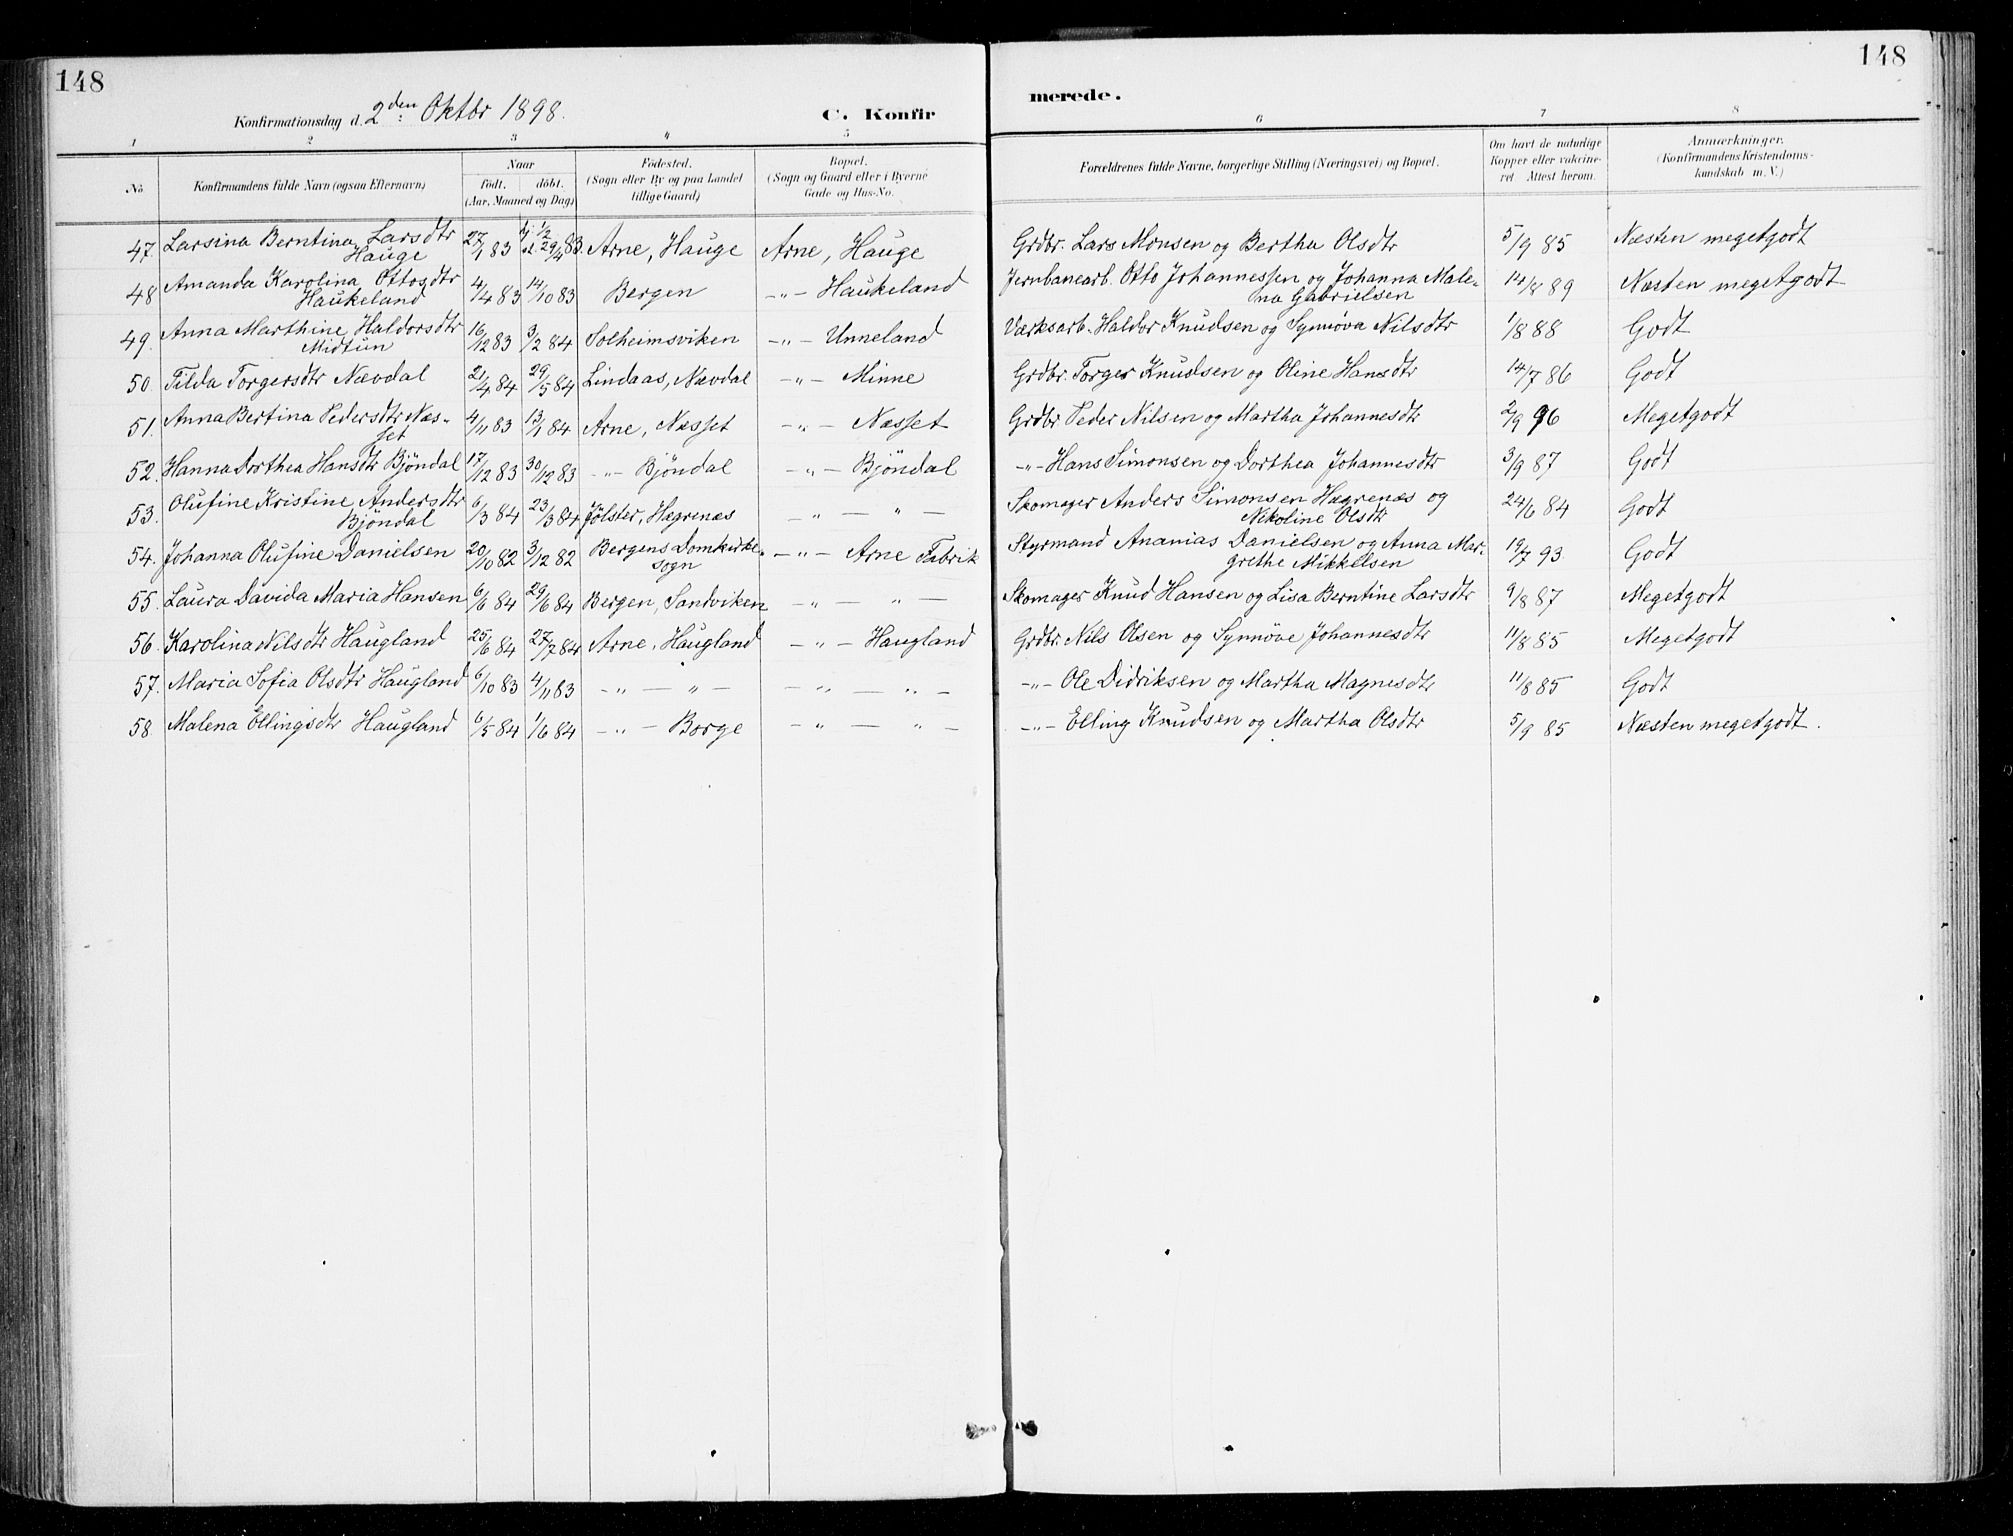 148
148
Konfirmationsdag d. 2den Oktbr 1898.
C. Konfir
merede.
1 2 3 4 5 6 7 8
No
Konfirmandens fulde Navn (ogsaa Efternavn)
Naar
födt. döbt.
(Aar, Maaned og Dag)
Födested.
(Sogn eller By og paa Landet
tillige Gaard)
Bopæl.
(Sogn og Gaard eller i Byerne
Gade og Hus-No.
Forældrenes fulde Navne, borgerlige Stilling (Næringsvei) og Bopæl.
Om havt de naturlige
Kopper eller vakcine-
ret Attest herom.
Anmærkninger.
(Konfirmandens Kristendoms-
kundskab m. V.)
47. Larsina Berntina Larsdtr 27/1 83 hj. 1/2 st. 29/4 83. Arne, Hauge Arne, Hauge Grdbr. Lars Monsen og Bertha Olsdtr 5/9 85 Næsten megetgodt
Hauge
48 Amanda Karolina Ottosdtr 4/4 83 14/10 83 Bergen -"- Haukeland Jernbanearb. Otto Johannessen og Johanna Male- 14/8 89 Næsten megetgodt
Haukeland na Gabrielsen
49. Anna Marthine Haldorsdtr 16/12 83 3/2 84 Solheimsviken -"- Unneland Værksarb. Haldor Knudsen og Synnöva Nilsdtr 1/8 88 Godt
Midtun
50 Tilda Torgersdtr Nævdal 21/4 84 29/5 84 Lindaas, Nævdal -"- Minne Grdbr. Torger Knudsen og Oline Hansdtr 14/7 86 Godt
51. Anna Bertina Pedersdtr Næs- 4/11 83 13/1 84 Arne, Næsset -"- Næsset Grdbr. Peder Nilsen og Martha Johannesdtr 2/9 96 Megetgodt
set
52. Hanna Dorthea Hansdtr Bjöndal 17/12 83 30/12 83 -"- Bjöndal -"- Bjöndal -"- Hans Simonsen og Dorthea Johannesdtr 3/9 87 Godt
53. Olufine Kristine Andersdtr 6/3 84 23/3 84 Jölster, Hægrenæs - " - " - Skomager Anders Simonsen Hægrenæs og 24/6 84 Godt
Bjöndal Nikoline Olsdtr
54. Johanna Olufine Danielsen 20/10 82 3/12 82 Bergens Domkirke- -"- Arne Fabrik Styrmand Ananias Danielsen og Anna Mar- 19/7 93 Godt
sogn grethe Mikkelsen
55. Laura Davida Maria Hansen 6/6 84 29/6 84 Bergen, Sandviken - " - " - Skomager Knud Hansen og Lisa Berntine Larsdtr 9/8 87 Megetgodt
56. Karolina Nilsdtr Haugland 25/6 84 27/7 84 Arne, Haugland - " - Haugland Grdbr. Nils Olsen og Synnöve Johannesdtr 11/8 85 Megetgodt
57. Maria Sofia Olsdtr Haugland 6/10 83 4/11 83 - " - " - - " - " - -"- Ole Didriksen og Martha Magnesdtr 11/8 85 Godt
58 Malena Ellingsdtr Haugland 6/5 84 1/6 84 - " - Borge - " - " - -"- Elling Knudsen og Martha Olsdtr 5/9 85 Næsten megetgodt.